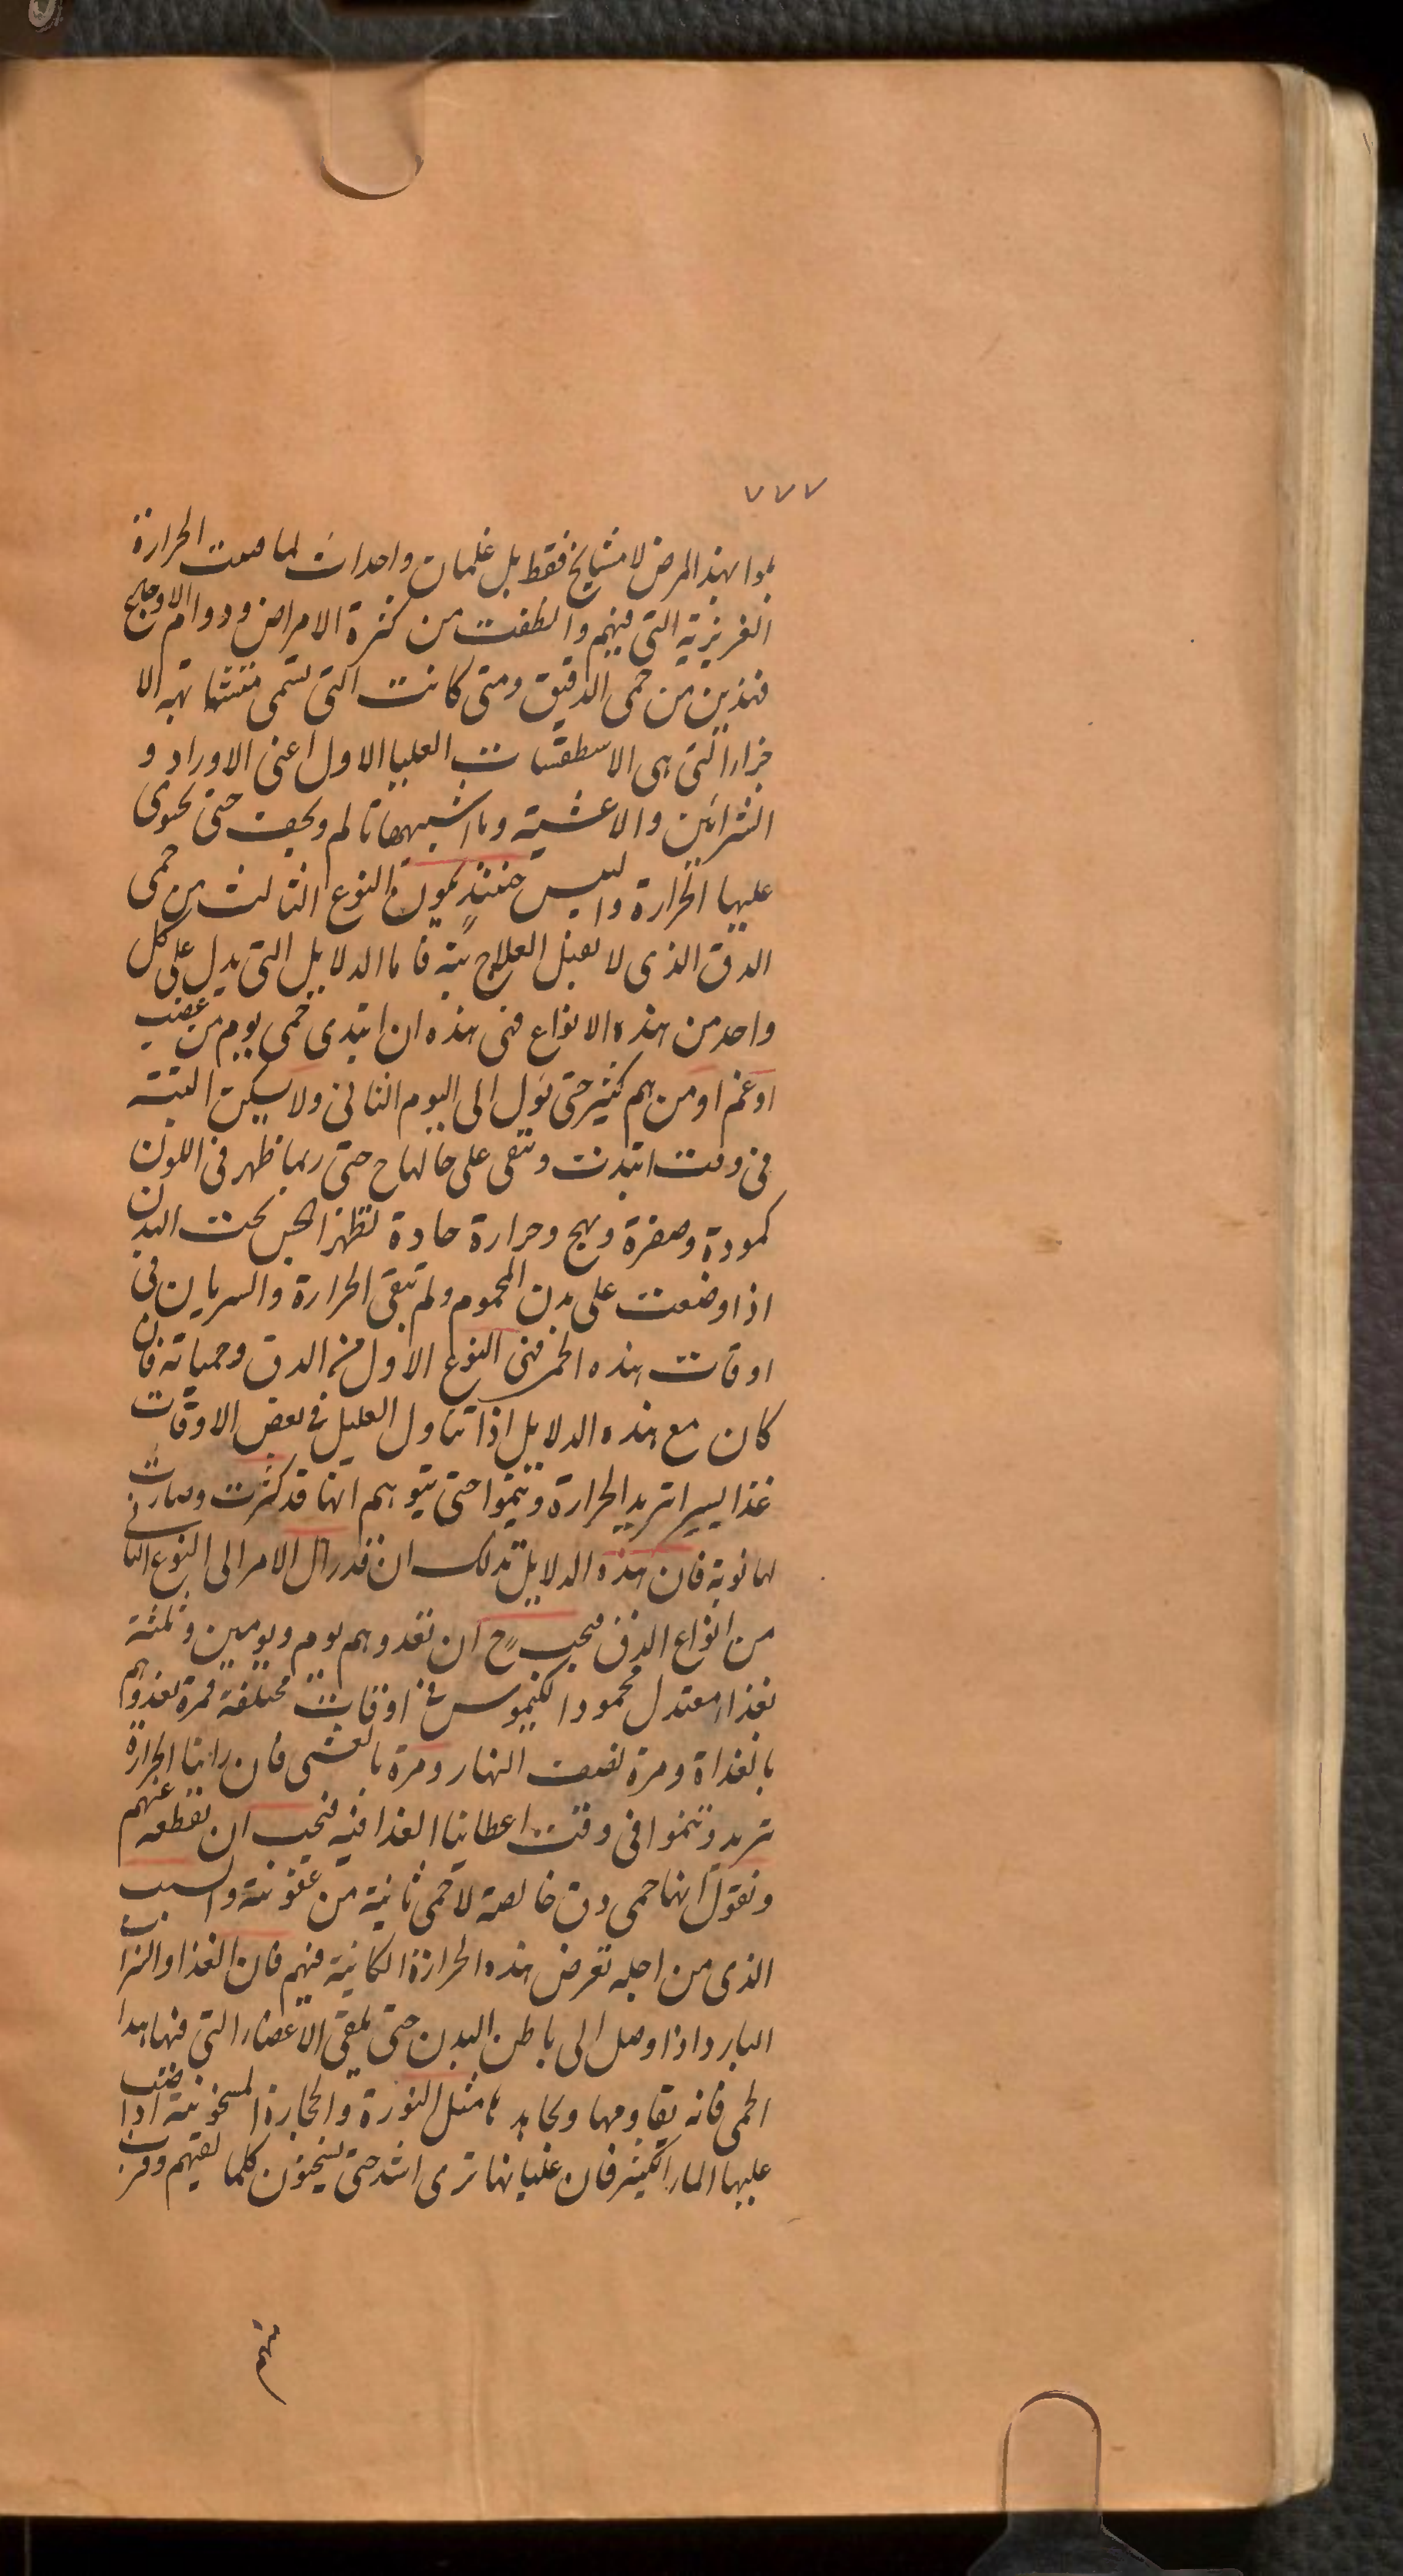 ٧٧٧
بلوا بهذ المرض لا مشايخ فقط بل غلمان واحداث لما ضعفت الحرارة
الغريزية التى فيهم وانطفت من كثرة الامراض ودوام الاوجاع
فهذين من حمى الدقيق ومتى كانت التى تسمى متشابهة الا
جزاء التى هى الاسطقسات العليا الاول اعنى الاوراد و
الشرائين والاغشية وما اشبهها تالم ويجف حتى يحتوى
عليها الحرارة واليبس حينئذ يكون النوع الثالث من حمى
الدق الذى لا يقبل العلاج بتة فاما الدلايل التى يدل على كل
واحد من هذه الانواع فهى هذه ان ابتدى حمى يوم من غضب
او غم او من هم كثير حتى يؤل الى اليوم الثانى ولا يسكن البتة
فى وقت ابتدت وتبقى على حالها ح حتى ربما ظهر فى اللون
كمودة وصفرة وهيج وحرارة حادة تظهر الحس تحت اليدين
اذا وضعت على بدن المحموم ولم تبقى الحرارة والسريان فى
اوقات هذه الحمى فهى النوع الاول من الدق وحمياته فان
كان مع هذه الدلايل اذا تناول العليل فى بعض الاوقات
غذا يسيرا تزيد الحرارة وينموا حتى يتوهم انها قد كثرت وصارت
لها نوبة فان هذه الدلايل تدلك ان قد زال الامر الى النوع الثانى
من انواع الدق فيجب ح ان نغدوهم يوم ويومين وثلثة
بغذاء معتدل محمود الكيموس فى اوقات مختلفة فمرة نغدوهم
بالغداة ومرة نصف النهار ومرة بالعشى فان راينا الحرارة
تزيد وتنموا فى وقت اعطاينا الغذا فيه فيجب ان نقطعه عنهم
ونقول انها حمى دق خالصة لا حمى ثانية من عفونة والسبب
الذى من اجله تعرض هذه الحرارة الكانية فيهم فان الغذا والشراب
البارد اذا وصل الى باطن البدن حتى يلقى الاعضاء التى فيها هذا
الحمى فانه يقاومها ويجاهد ها مثل النورة والحجارة المسخونة اذا صب
عليها الماء الكثير فان غليانها ترى اشد حتى يسخنون كلما لقيهم وقرب
منهم